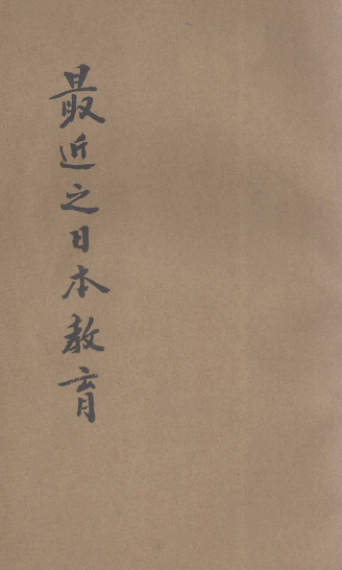 最近之日本教育